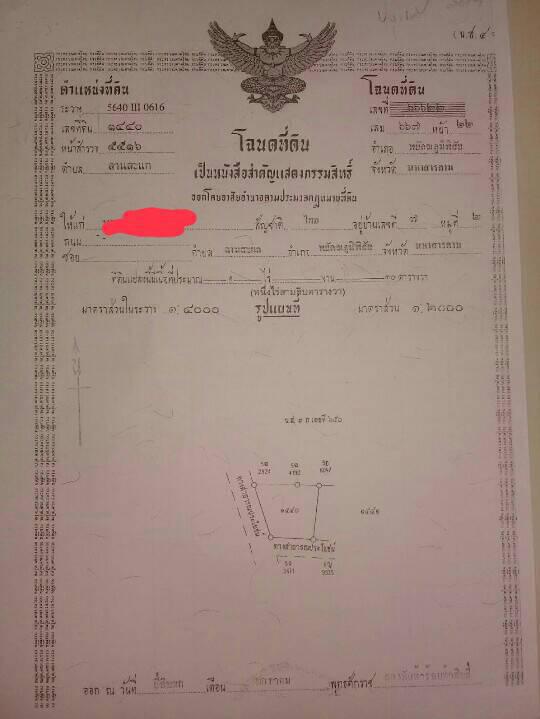 (น.ส.๔
ตำแหน่งที่ดิน
ระวาง 5640 III 0616
เลขที่ดิน ๑๔๔๐
หน้าสำรวจ ๕๕๑๖
ตำบล ลานสะแก
โฉนดที่ดิน
เลขที่ ๖๖๖๒๒
เล่ม ๖๖๗ หน้า ๒๒
อำเภอ พยัคฆภูมิพิสัย
จังหวัด มหาสารคาม
โฉนดที่ดิน
เป็นหนังสือสำคัญแสดงกรรมสิทธิ์
ออกโดยอาศัยอำนาจตามประมวลกฎหมายที่ดิน
ให้แก่ สัญชาติ ไทย อยู่บ้านเลขที่ ๗ หมู่ที่ ๒
ถนน
ซอย ตำบล ลานสะแก อำเภอ พยัคฆภูมิพิสัย จังหวัด มหาสารคาม
ที่ดินแปลงนี้มีเนื้อที่ประมาณ ๑ ไร่ - งาน ๓๐ ตารางวา
(หนึ่งไร่สามสิบตารางวา)
มาตราส่วนในระวาง ๑:๔๐๐๐ รูปแผนที่ มาตราส่วน ๑:๒๐๐๐
น.ส. ๓ ก เลขที่ ๒๕๐
๑๔๔๐
ทางสาธารณประโยชน์
ทางสาธารณประโยชน์
ออก ณ วันที่ ยี่สิบหก เดือน พุทธศักราช สองพันห้าร้อยห้าสิบสี่